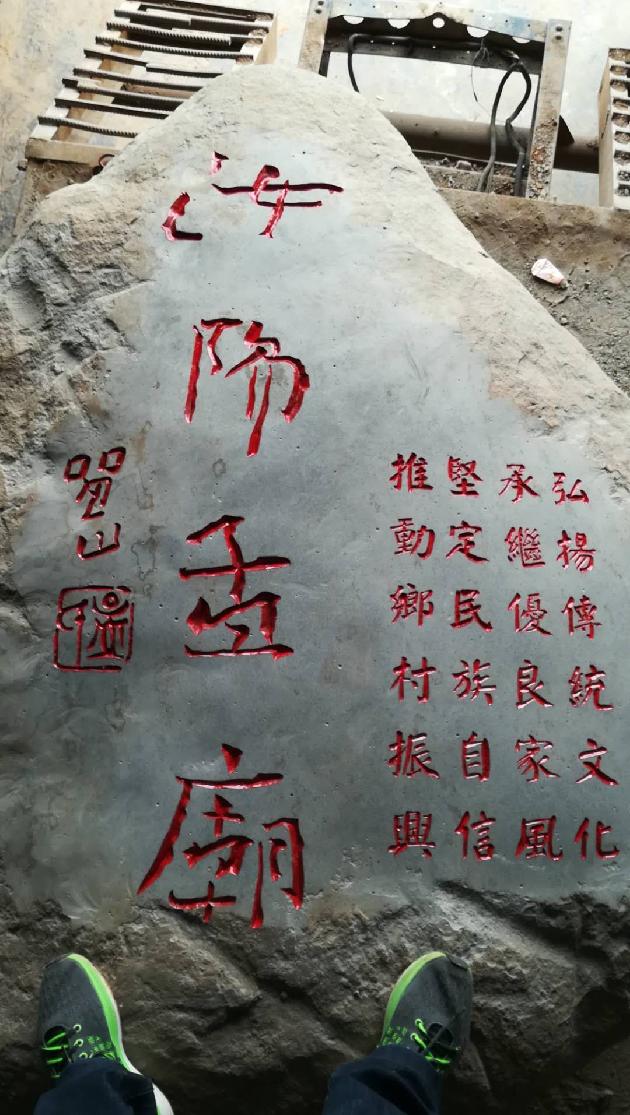 弘揚傳統文化
承繼優良家風
堅定民族自信
推動鄉村振興
汝陽孟廟